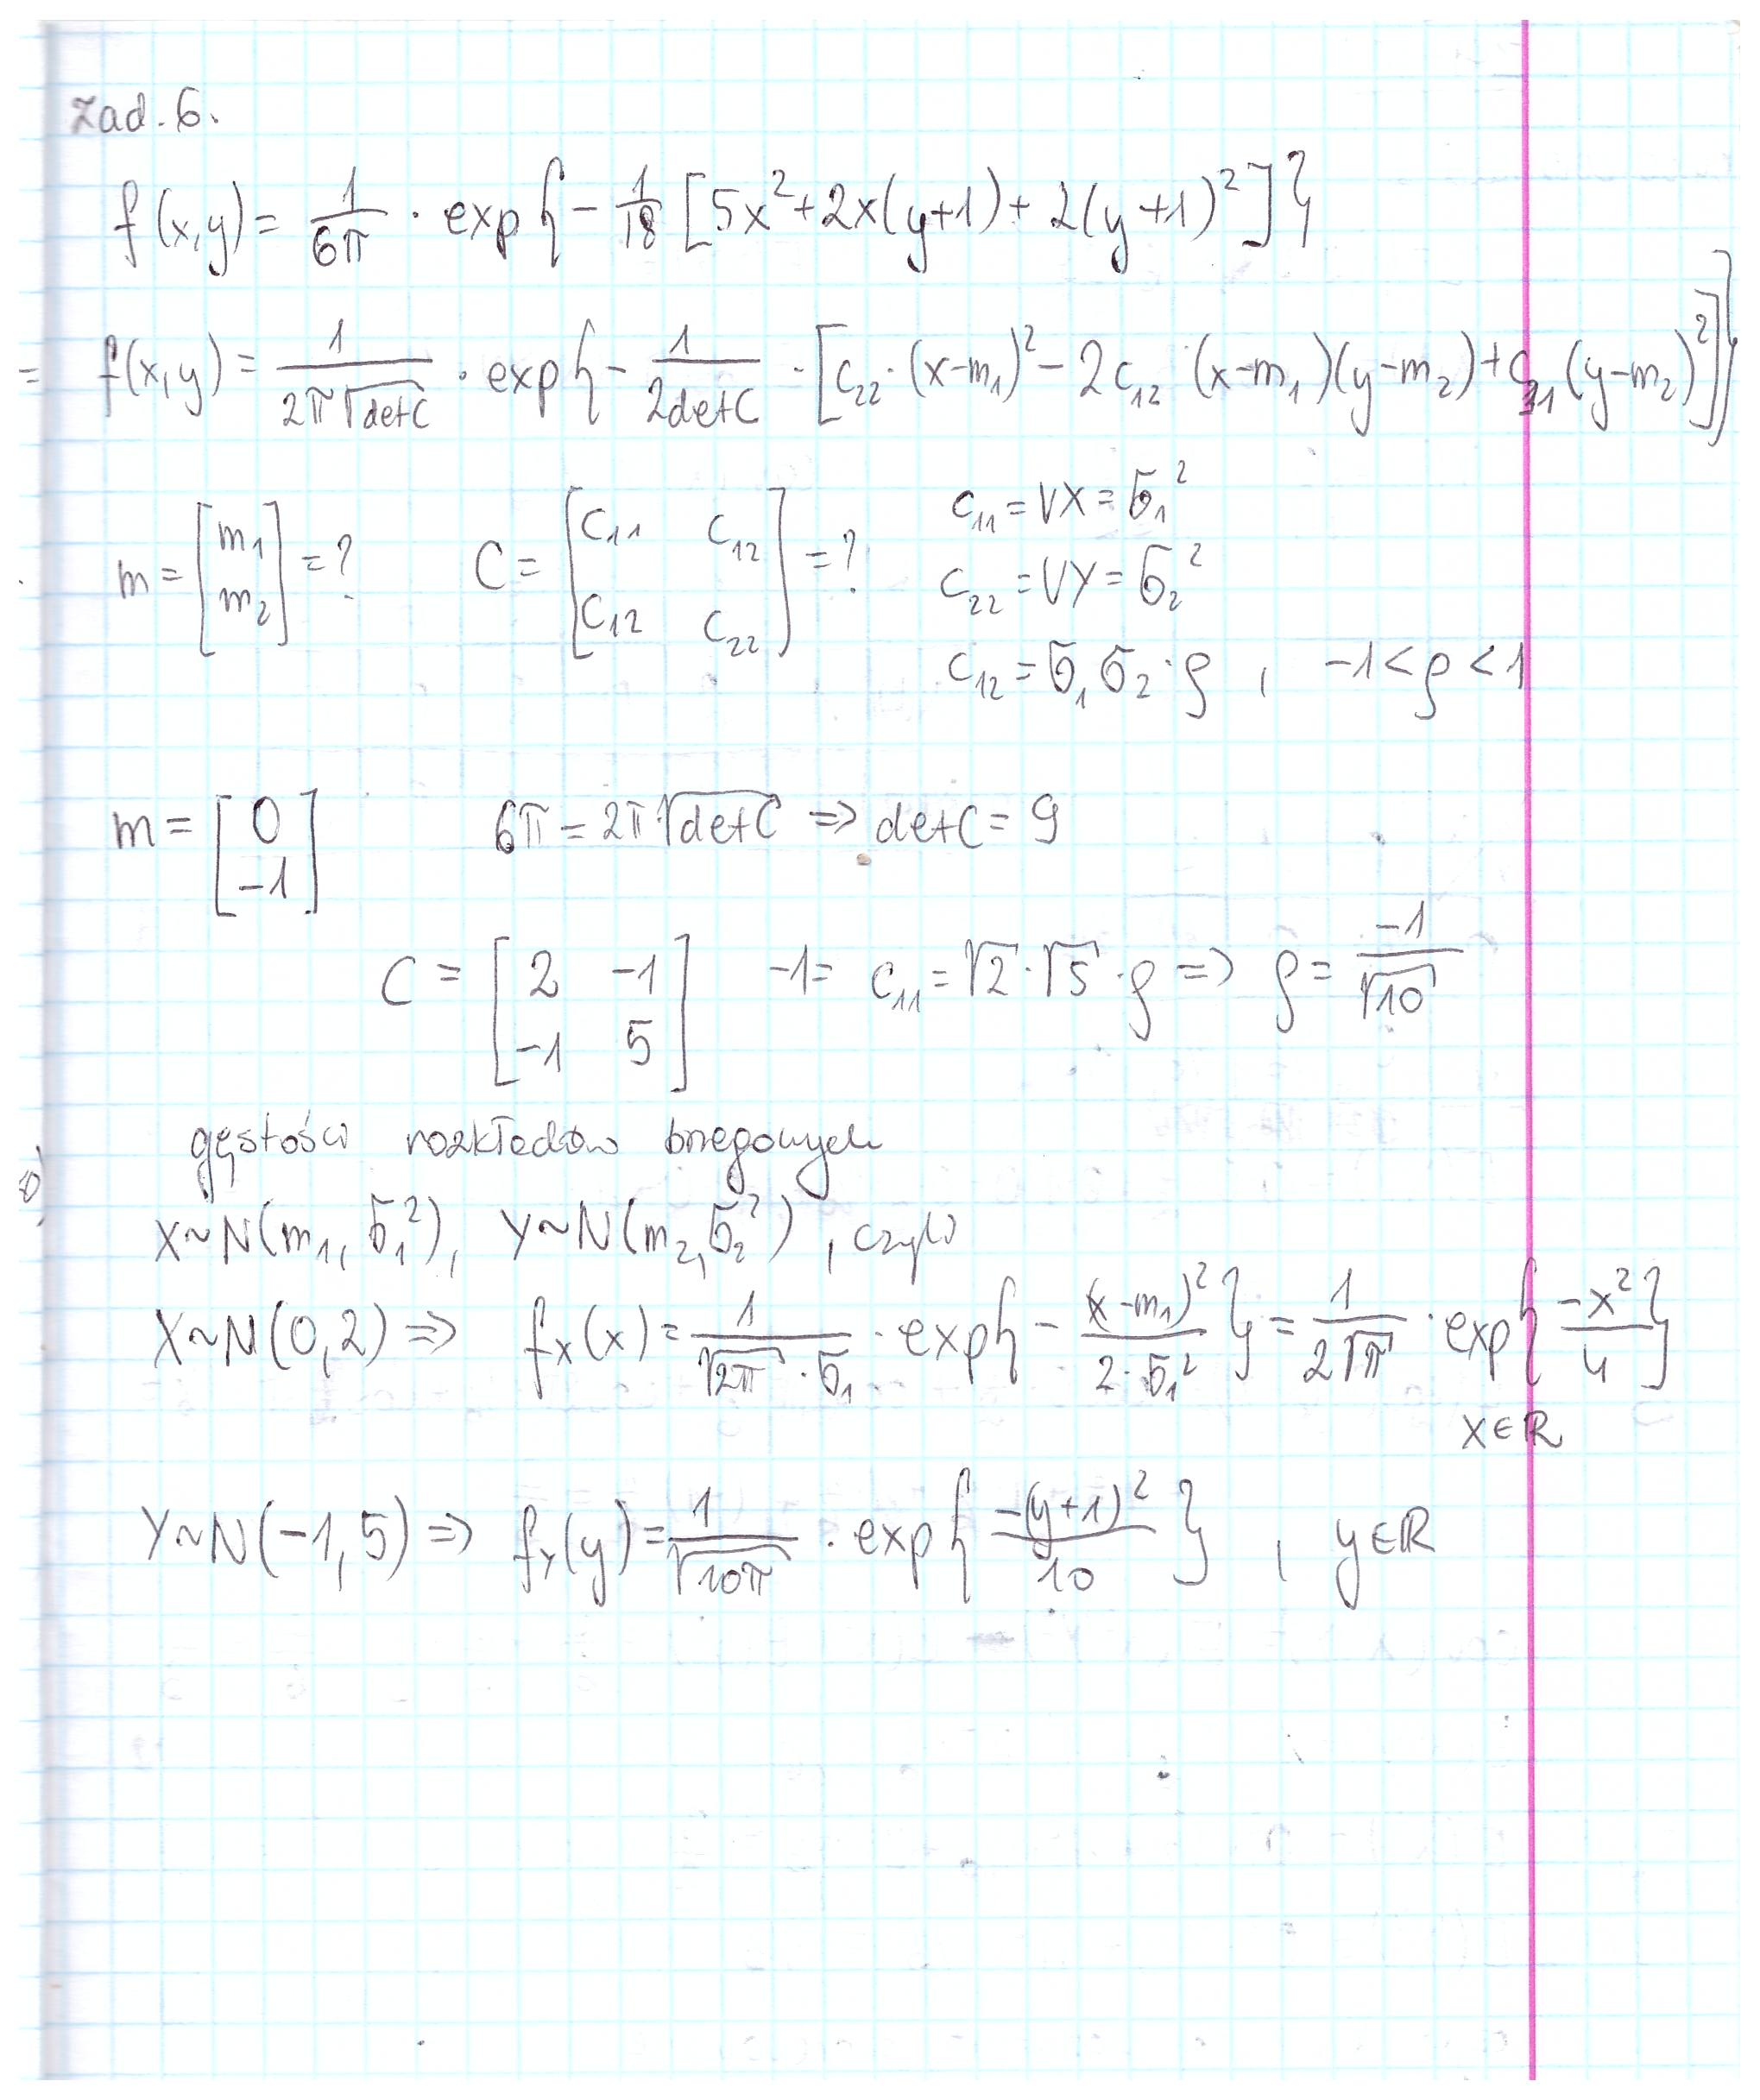 Zad. 6.
f(x,y) = 1/(6π) · exp{ - 1/18 [5x² + 2x(y+1) + 2(y+1)²] }
= f(x,y) = 1/(2π√detC) · exp{ - 1/(2detC) · [c₂₂·(x-m₁)² - 2c₁₂·(x-m₁)(y-m₂) + c₁₁(y-m₂)²] }
m = [m₁; m₂] = ? C = [c₁₁ c₁₂; c₁₂ c₂₂] = ? c₁₁ = VX = σ₁²
c₂₂ = VY = σ₂²
c₁₂ = σ₁σ₂·ρ , -1 < ρ < 1
m = [0; -1] 6π = 2π√detC ⇒ detC = 9
C = [2 -1; -1 5] -1 = c₁₁ = √2·√5·ρ ⇒ ρ = -1/√10
gęstości rozkładów brzegowych
X~N(m₁, σ₁²), Y~N(m₂, σ₂²) , czyli
X~N(0,2) ⇒ fₓ(x) = 1/(√2π·σ₁) · exp{ - (x-m₁)²/(2·σ₁²) } = 1/(2√π) · exp{ -x²/4 }
x∈ℝ
Y~N(-1,5) ⇒ f_Y(y) = 1/√10π · exp{ -(y+1)²/10 } , y∈ℝ